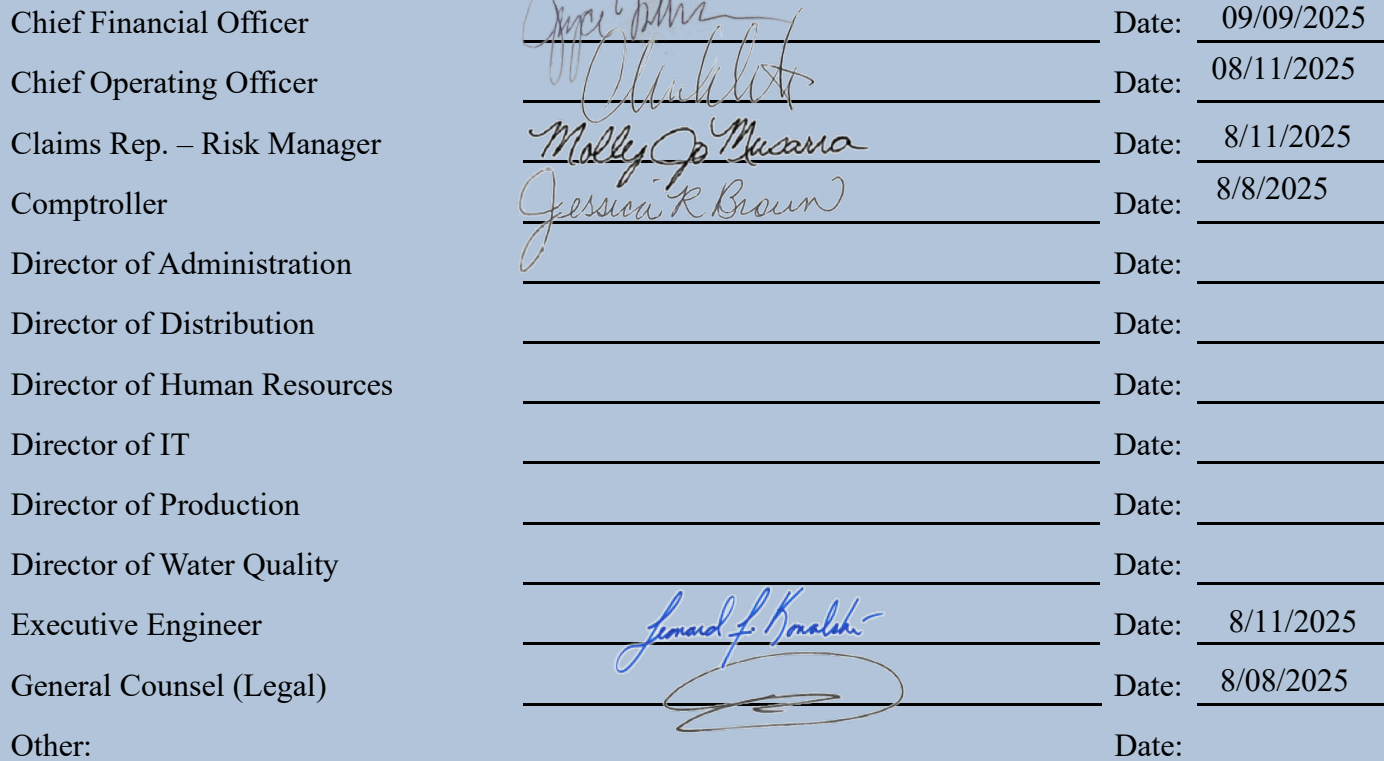 Chief Financial Officer Date: 09/09/2025
Chief Operating Officer Date: 08/11/2025
Claims Rep. – Risk Manager Molly Jo Musarra Date: 8/11/2025
Comptroller Jessica R Brown Date: 8/8/2025
Director of Administration Date:
Director of Distribution Date:
Director of Human Resources Date:
Director of IT Date:
Director of Production Date:
Director of Water Quality Date:
Executive Engineer Leonard F. Kowalski Date: 8/11/2025
General Counsel (Legal) Date: 8/08/2025
Other: Date: